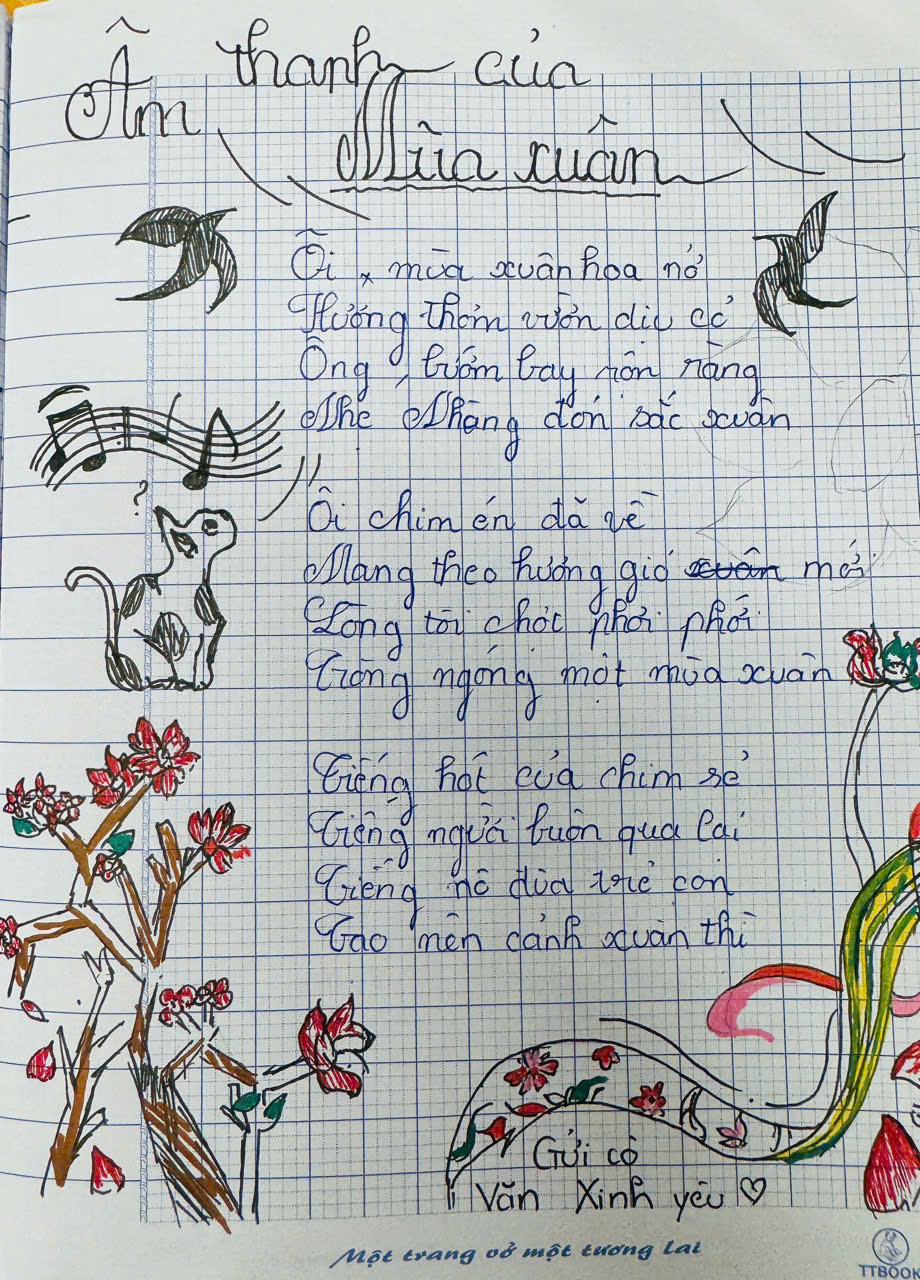 Âm thanh của
Mùa xuân
Ôi, mùa xuân hoa nở
Hương thơm vườn dịu cỏ
Ong, bướm bay rộn ràng
Nhẹ Nhàng đón sắc xuân
Ôi chim én đã về
Mang theo hương gió xuân mới
Lòng tôi chợt phơi phới
Trông ngóng một mùa xuân
Tiếng hót của chim sẻ
Tiếng người buôn qua lại
Tiếng nô đùa trẻ con
Tạo nên cảnh xuân thì
Gửi cô
Văn Xinh yêu ♡
Một trang vở một tương lai
TTBOOK